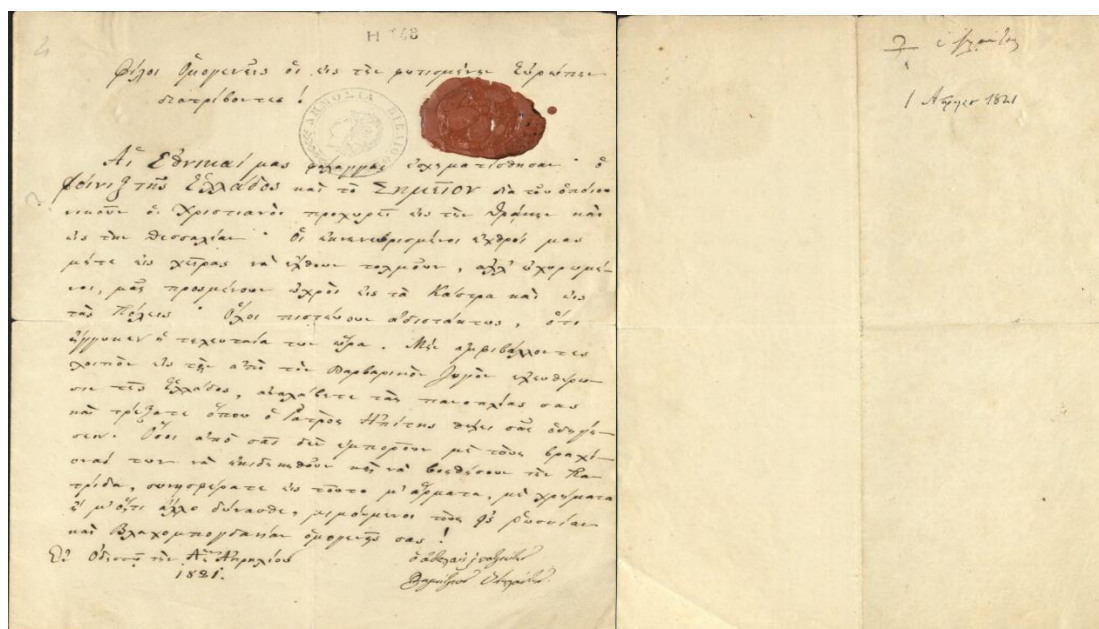 Η 168
Φίλοι Ὁμογενεῖς οἱ εἰς τὴν φωτισμένην Εὐρώπην
διατρίβοντες!
ΔΗΜΟΣΙΑ
Αἱ Ἐθνικαί μας φάλαγγες ἐσχηματίσθησαν· ὁ
φοίνιξ τῆς Ἑλλάδος καὶ τὸ Σημεῖον διὰ τοῦ ὁποίου
νικοῦν οἱ Χριστιανοὶ προχωρεῖ εἰς τὴν Θράκην καὶ
εἰς τὴν Θεσσαλίαν· Οἱ ἐκνενευρισμένοι ἐχθροί μας
μήτε εἰς χεῖρας νὰ ἔλθουν τολμοῦν, ἀλλ' ὀχυρωμέ-
νοι, μᾶς προσμένουν ὠχροὶ εἰς τὰ Κάστρα καὶ εἰς
τὰς Πόλεις· Ὅλοι πιστεύουν ἀδιστάκτως, ὅτι
ἤγγικεν ἡ τελευταία των ὥρα. Μὴν ἀμφιβάλλοντες
λοιπὸν εἰς τὴν ἀπὸ τὸν Βαρβαρικὸν ζυγὸν ἐλευθέρω-
σιν τῆς Ἑλλάδος, ἀναλάβετε τὰς πανοπλίας σας
καὶ τρέξατε ὅπου ὁ Ἰατρὸς Ἠπίτης θέλει σᾶς ὁδηγή-
σειν. Ὅσοι ἀπὸ σᾶς δὲν ἐμποροῦν μὲ τοὺς βραχί-
ονάς των νὰ ἐκδικηθοῦν καὶ νὰ βοηθήσουν τὴν Πα-
τρίδα, συνεισφέρατε εἰς τοῦτο μ' ἅρματα, μὲ χρήματα
ἢ μ' ὅ,τι ἄλλο δύνασθε, μιμούμενοι τοὺς Ῥωσσίαν
καὶ Βλαχομπογδανίαν ὁμογενεῖς σας!
Ἐν Ὀδεσσῷ τὴν Αην Ἀπριλίου
1821.
Δημήτριος Ὑψηλάντης
1 Απριλ 1821